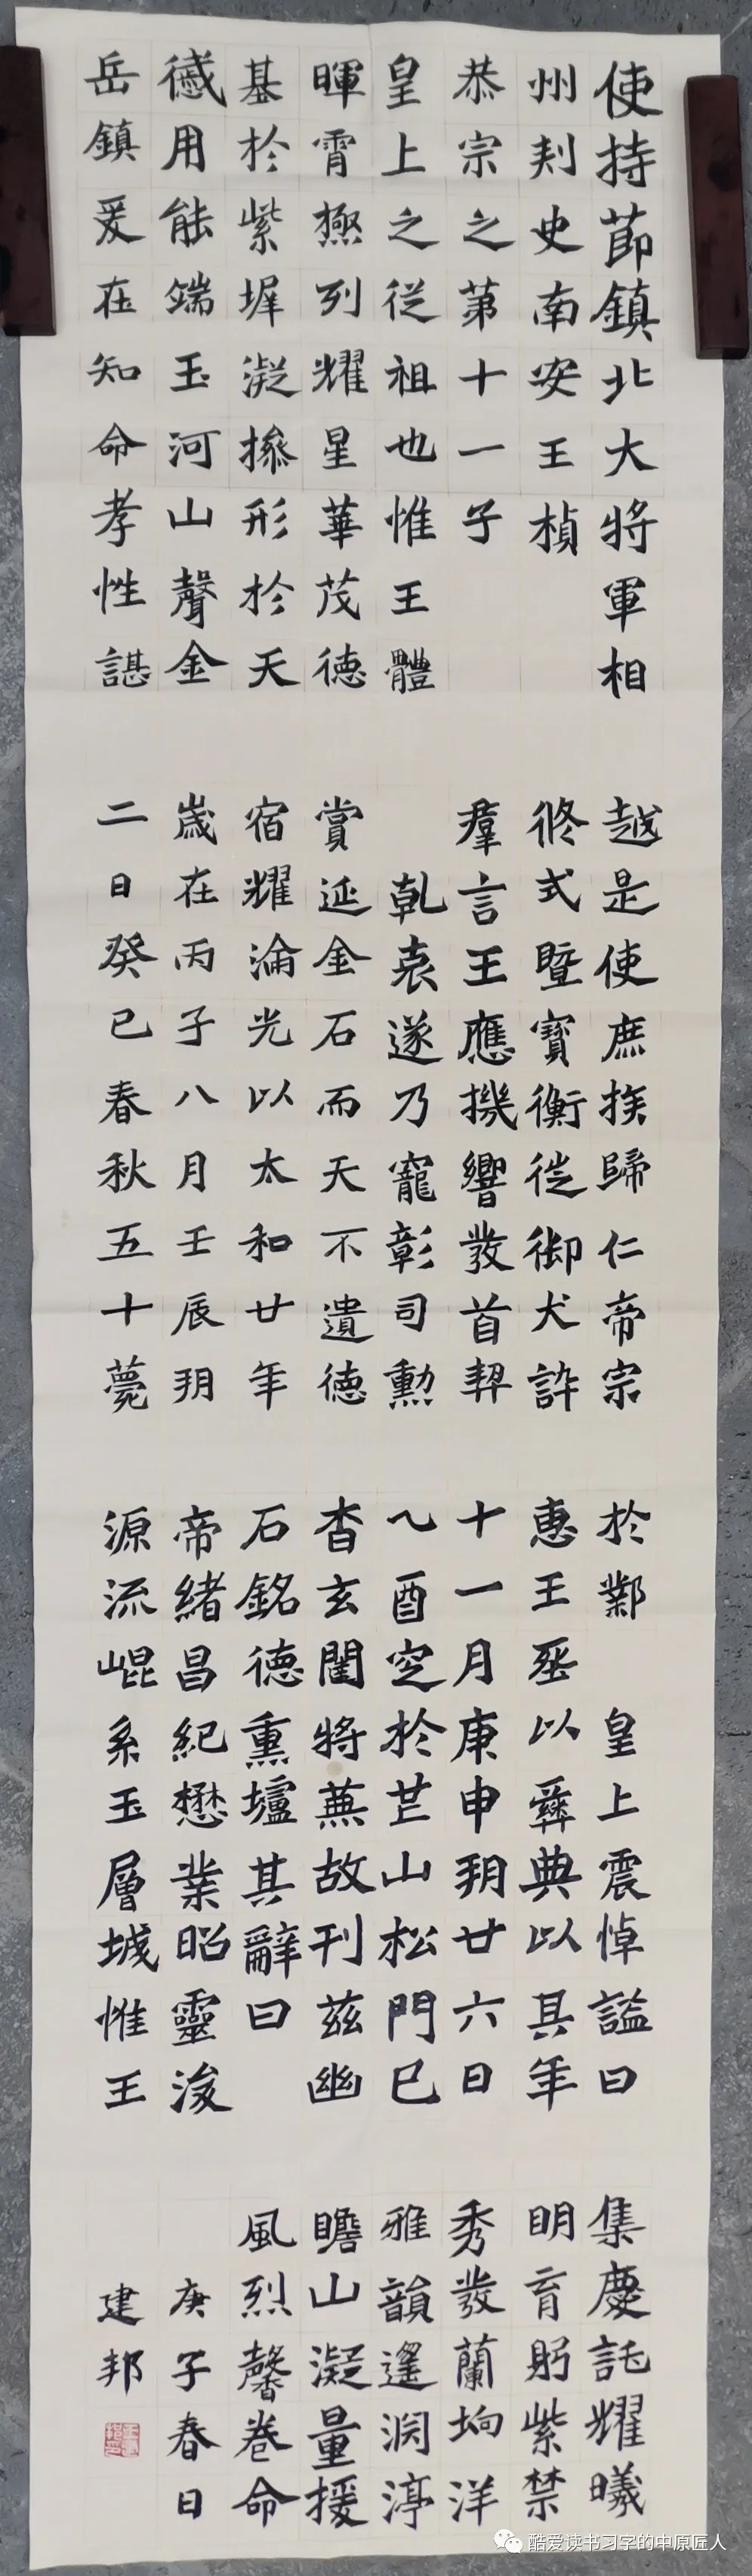 使持節鎮北大將軍相
州刾史南安王楨
恭宗之苐十一子
皇上之從祖也惟王體
暉霄極列耀星華茂德
基於紫墀凝操形於天
慽用能端玉河山聲金
岳鎮爰在知命孝性諶
越是使庶族歸仁帝宗
攸式暨寶衡徙御犬訴
羣言王應機響發首契
乾衷遂乃寵彰司勳
賞延金石而天不遺德
宿耀淪光以太和廿年
歲在丙子八月壬辰朔
二日癸巳春秋五十薨
於鄴 皇上震悼謚曰
惠王以彞典以其年
十一月庚申朔廿六日
乙酉窆於芒山松門已
杳玄闈將蕪故刊茲幽
石銘德熏壚其辭曰
帝緒昌紀懋業昭靈浚
源流崐系玉層城惟王
集慶託耀曦
明育躬紫禁
秀發蘭坰洋
雅韻遥渟
瞻山凝量援
風烈馨卷命
庚子春日
建邦
酷爱读书习字的中原匠人